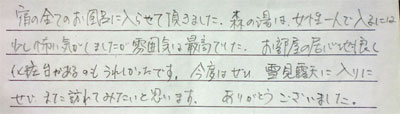 宿の全てのお風呂に入らせて頂きました。森の湯は、女性一人で入るには
少し怖い気がしましたが雰囲気は最高でした。お部屋の居心地も良く
化粧台があるのもうれしかったです。今度はぜひ 雪見露天に入りに
ぜひ また訪れてみたいと思います。 ありがとうございました。